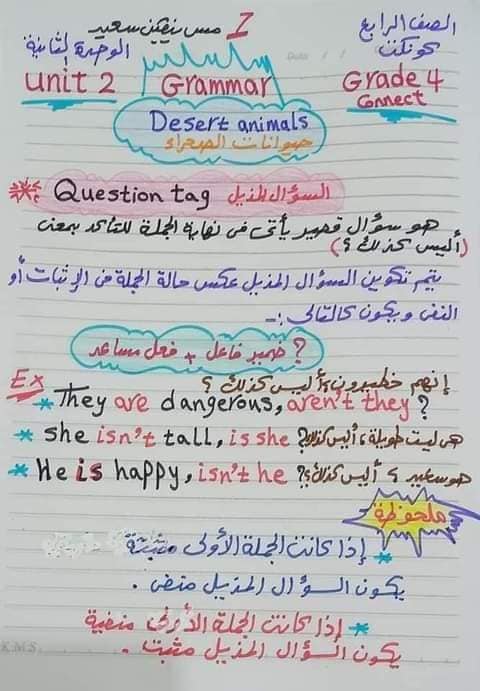 الصف الرابع
I مس نيفين سعيد
كونكت
الوحدة الثانية
Unit 2
Grammar
Grade 4
Connect
Desert animals
حيوانات الصحراء
Question tag السؤال المذيل
هو سؤال قصير يأتى فى نهاية الجملة للتأكد بمعنى
(أليس كذلك؟)
يتم تكوين السؤال المذيل عكس حالة الجملة من الإثبات أو
النفى ويكون كالتالى :-
؟ ضمير فاعل + فعل مساعد
إنهم خطيرون، أليس كذلك؟
Ex
* They are dangerous, aren't they?
* she isn't tall, is she? هى ليست طويلة، أليس كذلك؟
* He is happy, isn't he? هو سعيد، أليس كذلك؟
ملحوظة
* إذا كانت الجملة الأولى مثبتة
يكون السؤال المذيل منفى.
* إذا كانت الجملة الأولى منفية
يكون السؤال المذيل مثبت.
K.M.S